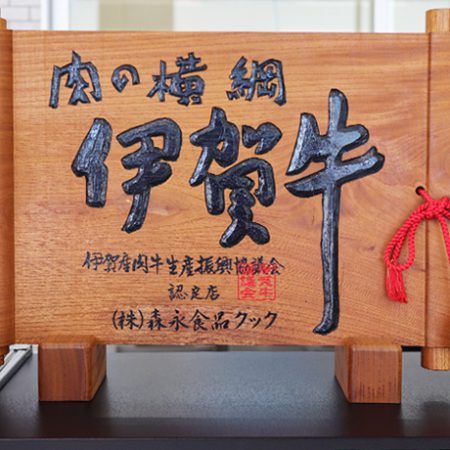 肉の横綱
伊賀牛
伊賀産肉牛生産振興協議会
認定店
(株)森永食品クック